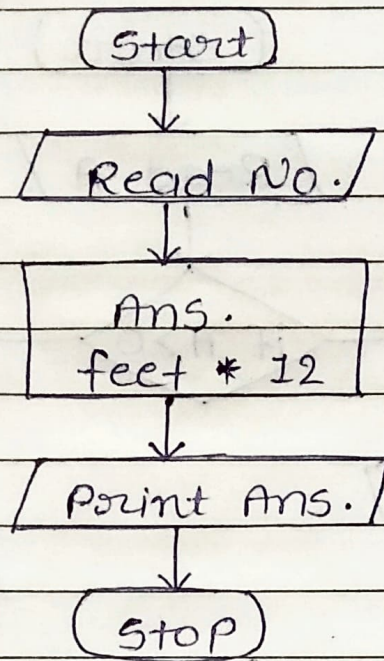 Start
Read No.
Ans.
feet * 12
Print Ans.
Stop